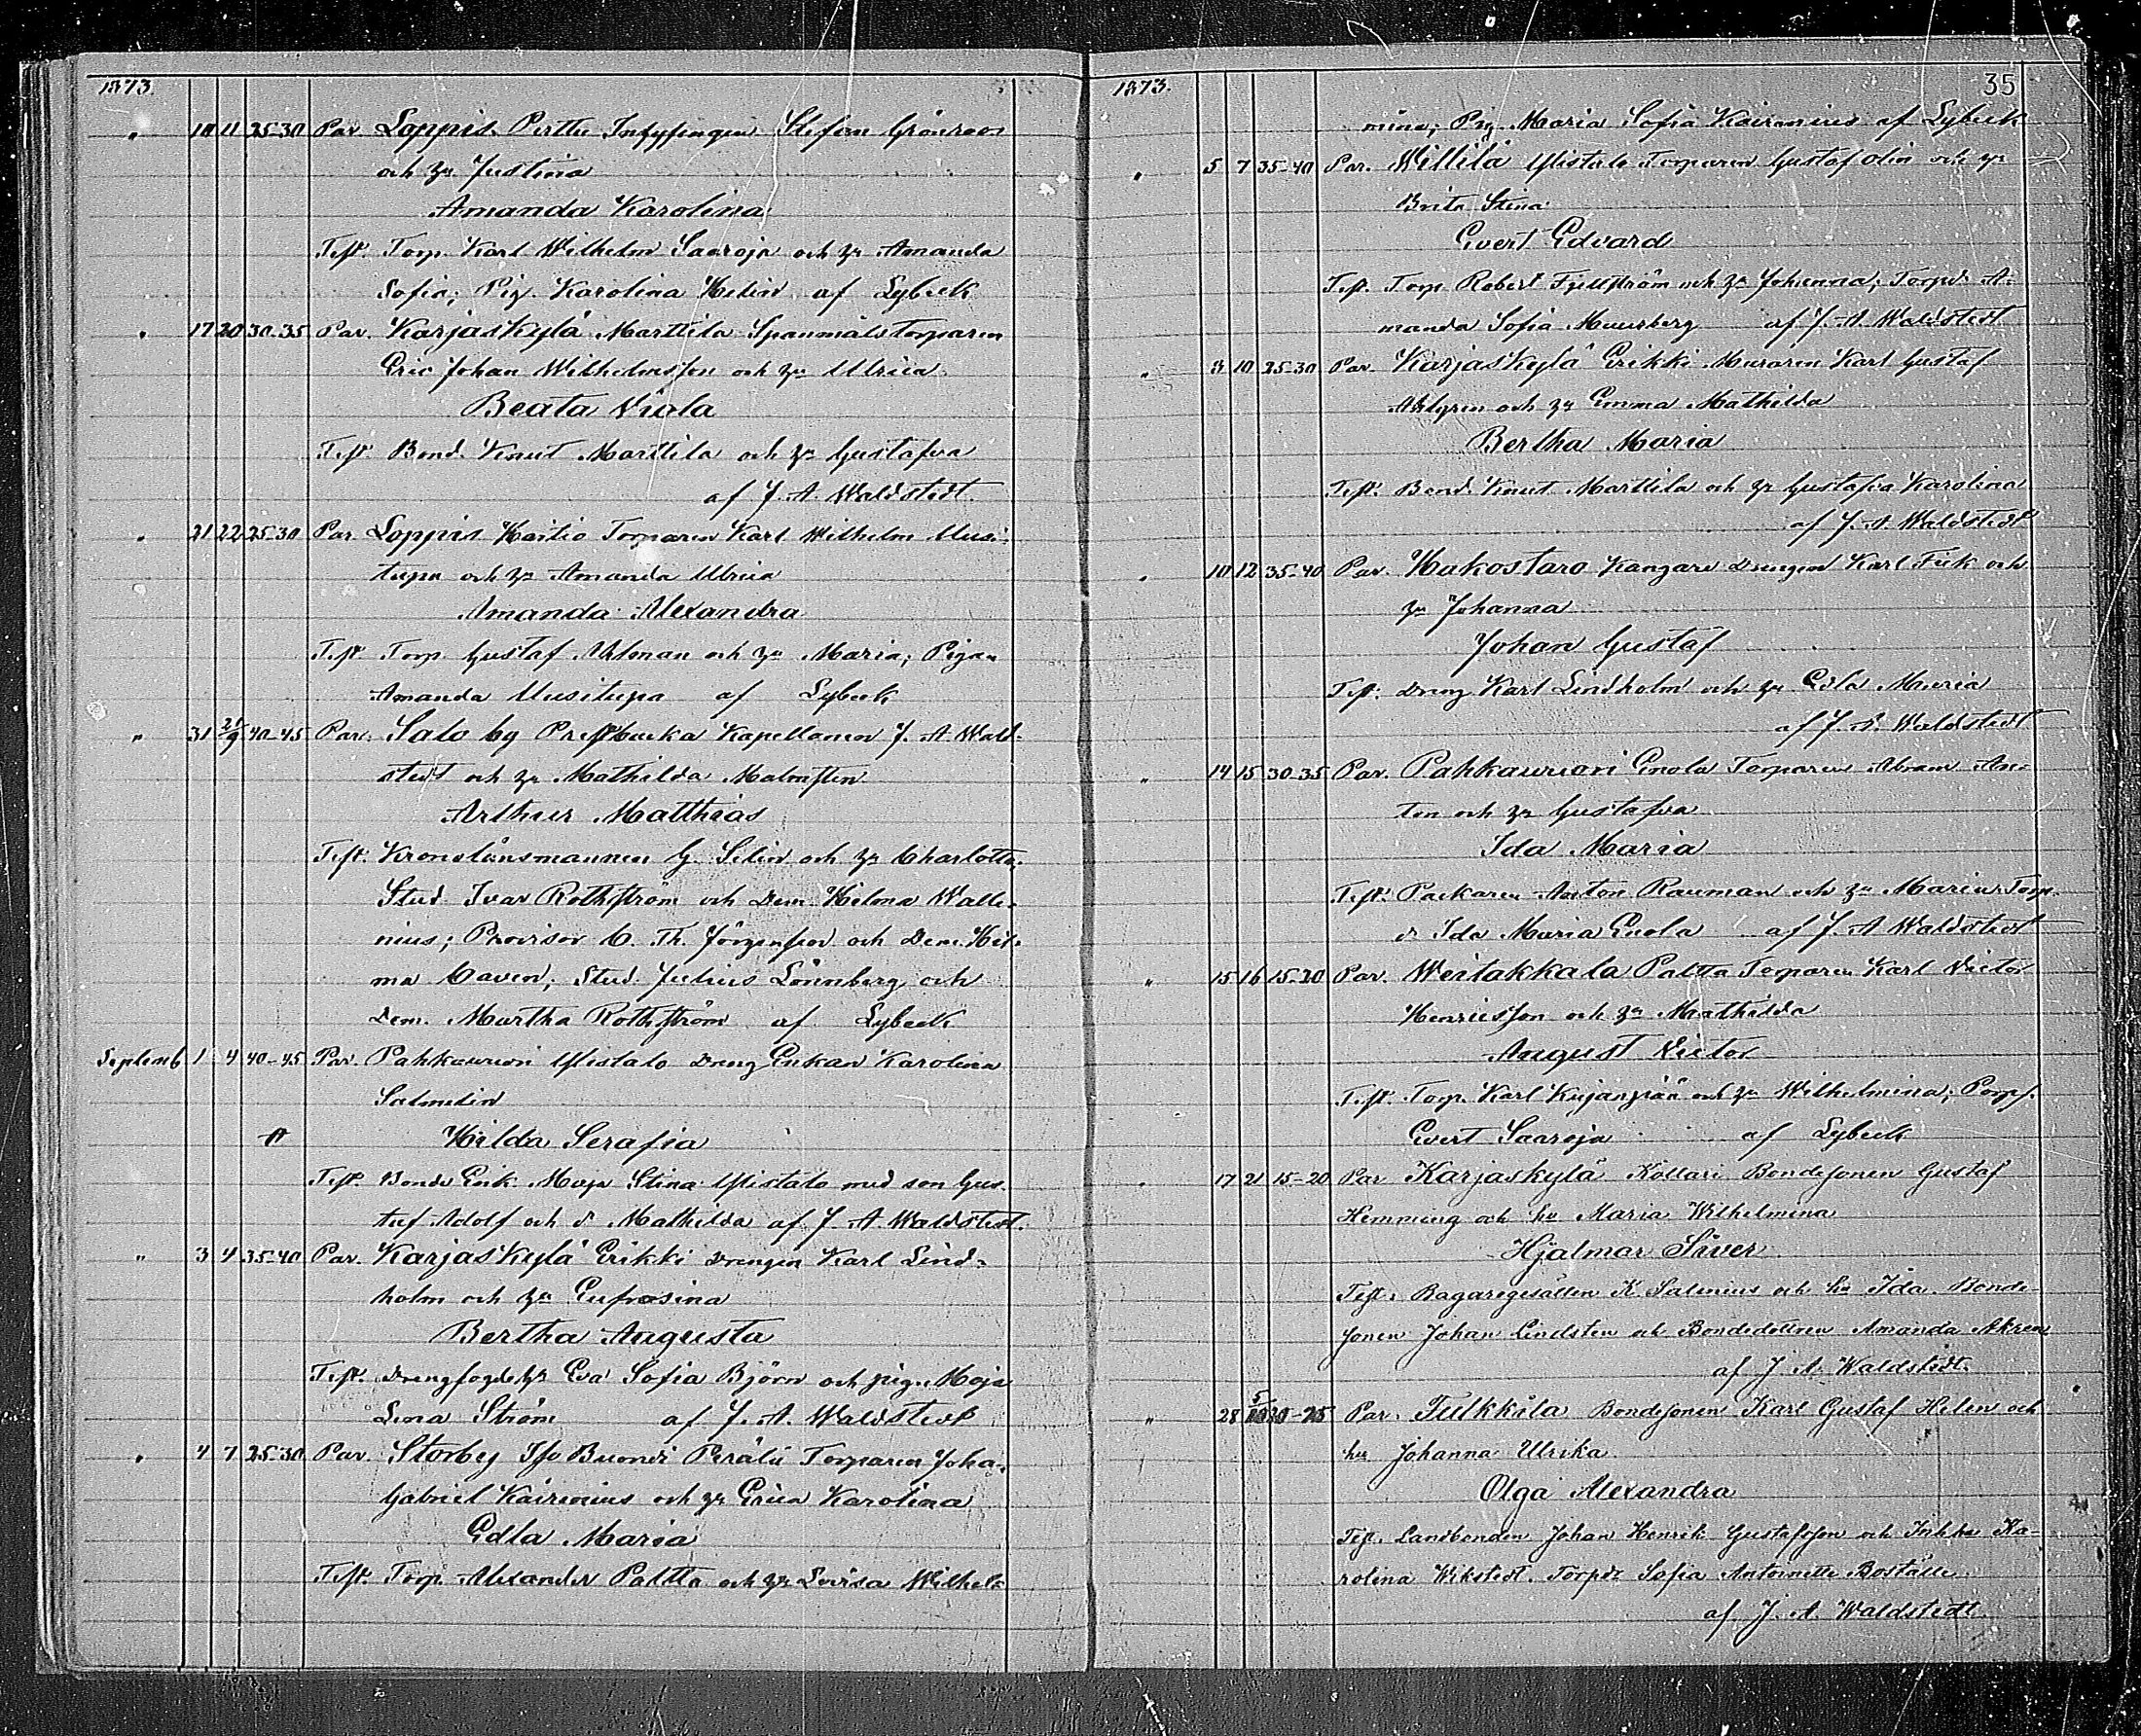 1873.
" 10 11 25-30 Par. Loppis Perttu Inhysingen Stefan Grönroos
och h:u Justina
Amanda Karolina
Test. Torp. Karl Wilhelm Saaroja och h:u Amanda
Sofia; Pig. Karolina Helin af Lybeck
" 17 20 30-35 Par. Karjaskylä Marttila Spanmåls Torparen
Eric Johan Wilhelmsson och h:u Ulrica
Beata Viola
Test. Bond. Knut Marttila och h:u Gustafva
af J. A. Waldstedt.
" 21 22 25-30 Par. Loppis Torparen Karl Wilhelm Uusi-
tupa och h:u Amanda Ulrica
Amanda Alexandra
Test. Torp. Gustaf Ahlman och h:u Maria; Pigan
Amanda Uusitupa af Lybeck
" 31 21/9 40-45 Par. Salo by Kapellanen J. A. Wald-
stedt och h:u Mathilda Malmsten
Arthur Matthias
Test. Kronolänsmannen G. Selin och h:u Charlotta,
Stud. Ivar Rothström och Dem. Hilma Walle-
nius; Provisor C. Th. Jörgensen och Dem. Hil-
ma Caven; Stud. Julius Lönnberg och
Dem. Martha Rothström af Lybeck
Septemb 1 4 40-45 Par. Pahkavuori Ylistalo Dreng Enkan Karolina
Salmelin
Hilda Serafia
Test. Bonde Erik Maja Stina Ylistalo med son Gus-
taf Adolf och d. Mathilda af J. A. Waldstedt.
" 3 4 35-40 Par. Karjaskylä Erikki Drengen Karl Lind-
holm och h:u Eufrosina
Bertha Augusta
Test. Drengfogde h:u Eva Sofia Björn och pig. Maja
Lena Ström af J. A. Waldstedt
" 4 7 25-30 Par. Storby Iso Perälä Torparen Joha.
Gabriel Kairenius och h:u Erica Karolina
Edla Maria
Test. Torp. Alexander Paltta och h:u Lovisa Wilhel-
1873. 35
mina; Pig. Maria Sofia Kairenius af Lybeck
" 5 7 35-40 Par. Willilä Ylistalo Torparen Gustaf Olin och h:u
Brita Stina
Evert Edvard
Test. Torp. Robert Fjellström och h:u Johanna; Torpd. A-
manda Sofia Muurberg af J. A. Waldstedt.
" 8 10 25-30 Par. Karjaskylä Erikki Muraren Karl Gustaf
Ahlgren och h:u Emma Mathilda
Bertha Maria
Test. Bond. Knut Marttila och h:u Gustafva Karolina
af J. A. Waldstedt
" 10 12 35-40 Par. Hakostaro Kangare Drengen Karl Fick och
h:u Johanna
Johan Gustaf
Test. Dreng Karl Lindholm och h:u Edla Maria
af J. A. Waldstedt
" 14 15 30-35 Par. Pahkavuori Enola Torparen Abram An-
ton och h:u Gustafva
Ida Maria
Test. Packaren Anton Rauman och h:u Maria; Torp.
d. Ida Maria Enola af J. A. Waldstedt
" 15 16 15-20 Par. Weitakkala Paltta Torparen Karl Victor
Henricsson och h:u Mathilda
August Victor
Test. Torp. Karl Kujanpää och h:u Wilhelmina; Torps.
Evert Saaroja af Lybeck
" 17 21 15-20 Par. Karjaskylä Kollari Bondesonen Gustaf
Hemming och hu Maria Wilhelmina
Hjalmar Siver
Test. Bagaregesällen K. Salenius och hu Ida. Bonde-
sonen Johan Lindsten och Bondedottren Amanda Akren
af J. A. Waldstedt.
" 28 5 Par. Tulkkila Bondesonen Karl Gustaf Helen och
hu Johanna Ulrika
Olga Alexandra
Test. Landbonden Johan Henrik Gustafsson och Ka-
rolina Wikstedt. Torpdr Sofia Antoinette Boställe
af J. A. Waldstedt.